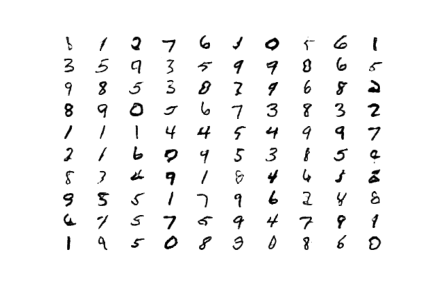 8 1 2 7 6 1 0 5 6 1
3 5 9 3 5 9 9 8 6 5
9 8 5 3 8 7 9 6 8 2
8 9 0 5 6 7 3 8 3 2
1 1 1 4 4 5 4 9 9 7
2 1 6 0 9 5 3 8 5 2
8 3 4 9 1 8 4 6 8
9 5 5 1 7 9 6 2 4 8
6 7 5 7 5 9 4 7 9 9
1 9 5 0 8 3 0 8 6 0